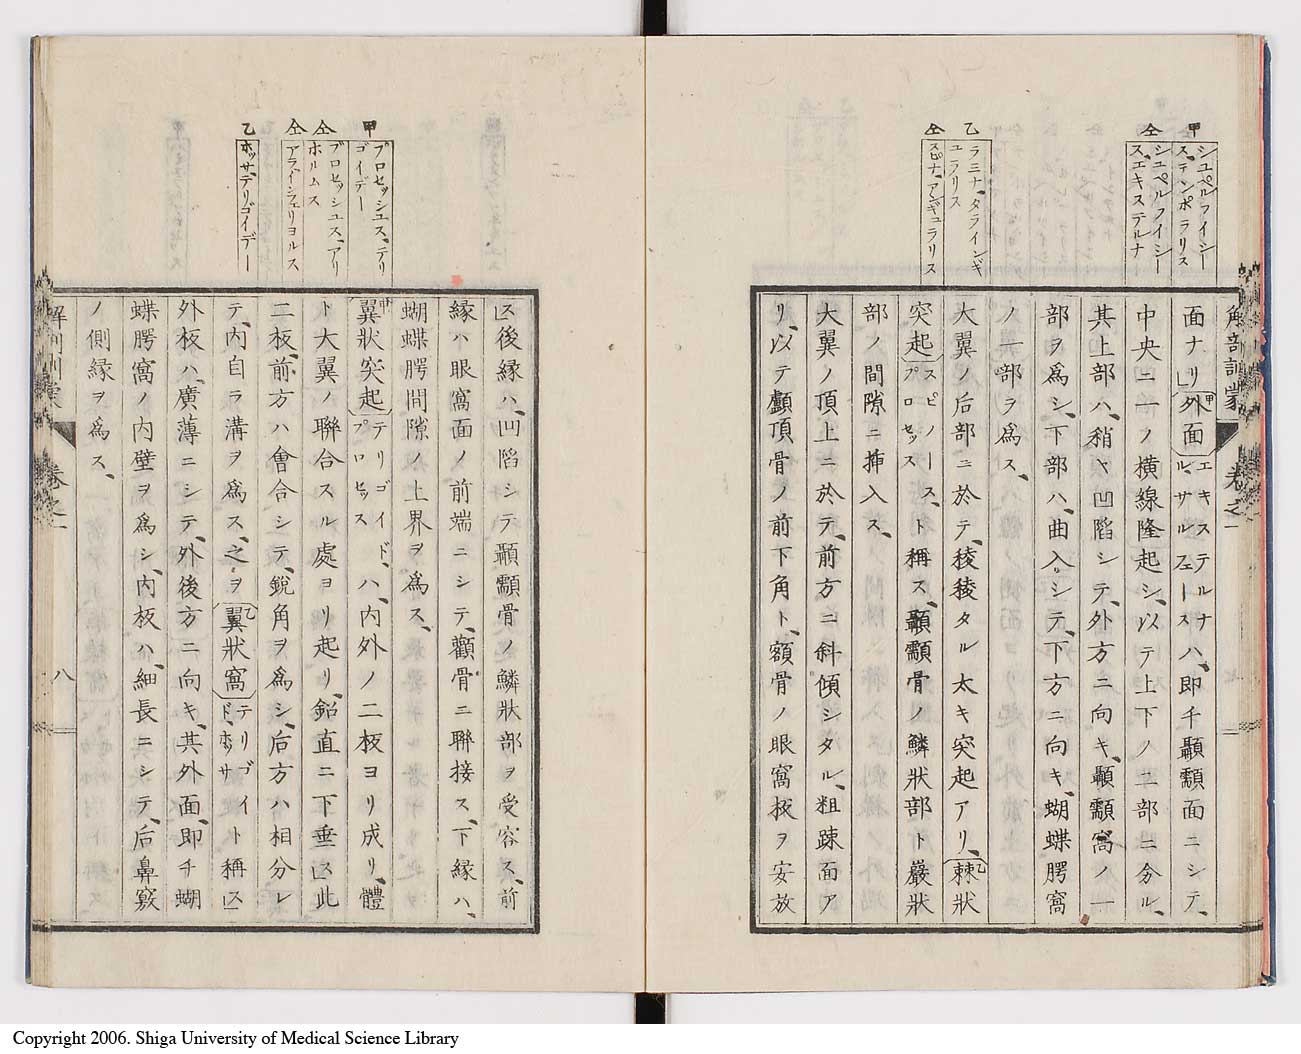 甲
シュペルフイシー
ス、テンポラリス
仝
シュペルフイシー
ス、エキステルナ
乙
ラミナ、タライシギ
ュラリス
仝
スピナ、アンギュラリス
解剖訓蒙
卷之一
面ナリ」外面エキステルナ
ルサルフェースハ、即チ顳顬面ニシテ、
中央ニ一ノ横線隆起シ、以テ上下ノ二部ニ分ル、
其上部ハ、稍ヤ凹陷シテ、外方ニ向キ、顳顬窩ノ一
部ヲ爲シ、下部ハ、曲入シテ、下方ニ向キ、蝴蝶腭窩
ノ一部ラ爲ス、
大翼ノ后部ニ於テ、稜稜タル太キ突起アリ、棘狀
突起スピノース、
プロセッスト稱ス、顳顬骨ノ鱗狀部ト巖狀
部ノ間隙ニ挿入ス、
大翼ノ頂上ニ於テ、前方ニ斜傾シタル、粗疎面ア
リ、以テ顱頂骨ノ前下角ト、額骨ノ眼窩板ヲ安放
甲
プロセッシユス、テリ
ゴイデー
仝
プロセッシユス、アリ
ホルムス
仝
アライシフェリヨルス
乙
ホッサ、テリゴイデー
ス」後縁ハ、凹陷シテ顳顬骨ノ鱗狀部ヲ受容ス、前
縁ハ眼窩面ノ前端ニシテ、顴骨ニ聯接ス、下縁ハ、
蝴蝶腭間隙ノ上界ヲ爲ス、
翼狀突起テリゴイド、
プロセッスハ、内外ノ二板ヨリ成リ、體
ト大翼ノ聯合スル處ヨリ起リ、鉛直ニ下垂ス」此
二板、前方ハ會合シテ、銳角ヲ爲シ、后方ハ相分レ
テ、内自ラ溝ヲ爲ス、之ヲ翼狀窩テリゴイ
ド、ホッサト稱ス」
外板ハ、廣薄ニシテ、外後方ニ向キ、其外面、即チ蝴
蝶腭窩ノ内壁ヲ爲シ、内板ハ、細長ニシテ、后鼻竅
ノ側縁ヲ爲ス、
解剖訓蒙
卷之一
八
Copyright 2006. Shiga University of Medical Science Library